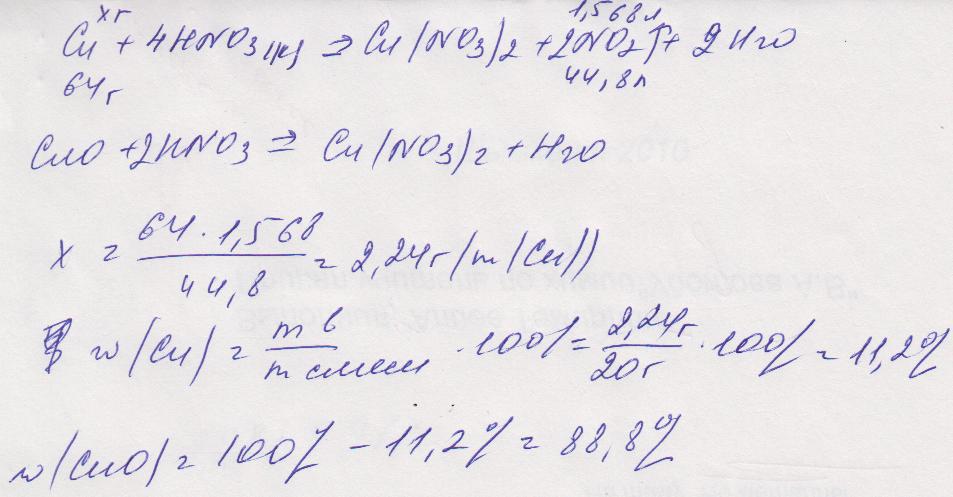 xг 1,568л
Cu + 4HNO3(к) => Cu(NO3)2 + 2NO2↑ + 2H2O
64г 44,8л
CuO + 2HNO3 => Cu(NO3)2 + H2O
x = 64 · 1,568 / 44,8 = 2,24г (m(Cu))
w(Cu) = m в / m смеси · 100% = 2,24г / 20г · 100% = 11,2%
w(CuO) = 100% - 11,2% = 88,8%